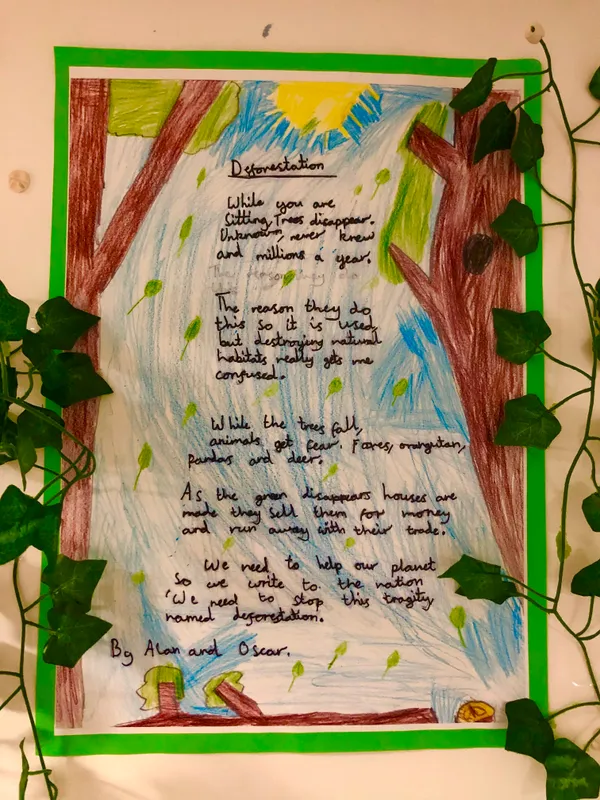 Deforestation
While you are
Sitting Trees disappear.
Unknown, never knew
and millions a year.
The reason they do
The reason they do
this so it is used,
but destroying natural
habitats really gets me
confused.
While the trees fall,
animals get fear. Foxes, orangitan,
Pandas and deer.
As the green disappears houses are
made they sell them for money
and run away with their trade.
We need to help our planet
So we write to the nation
'We need to stop this tragity
named deforestation.
By Alan and Oscar.